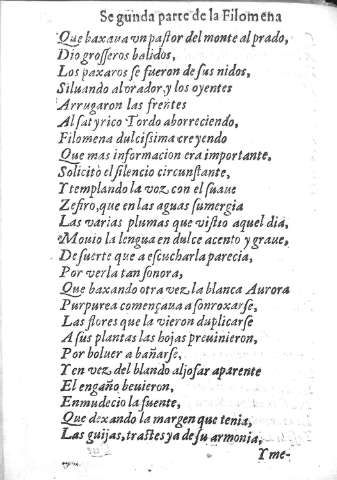 Segunda parte de la Filomena
Que baxaua vn pastor del monte al prado,
Dio grosseros balidos,
Los paxaros se fueron de sus nidos,
Siluando al orador, y los oyentes
Arrugaron las frentes
Al satyrico Tordo aborreciendo,
Filomena dulcissima creyendo
Que mas informacion era importante,
Solicitò el silencio circunstante,
Y templando la voz con el suaue
Zefiro, que en las aguas sumergia
Las varias plumas que vistio aquel dia,
Mouio la lengua en dulce acento y graue,
De suerte que a escucharla parecia,
Por verla tan sonora,
Que baxando otra vez, la blanca Aurora
Purpurea començaua a sonroxarse,
Las flores que la vieron duplicarse
A sus plantas las hojas preuinieron,
Por boluer a bañarse,
Y en vez del blando aljofar aparente
El engaño beuieron,
Enmudecio la fuente,
Que dexando la margen que tenia,
Las guijas, trastes ya de su armonia,
Y me-